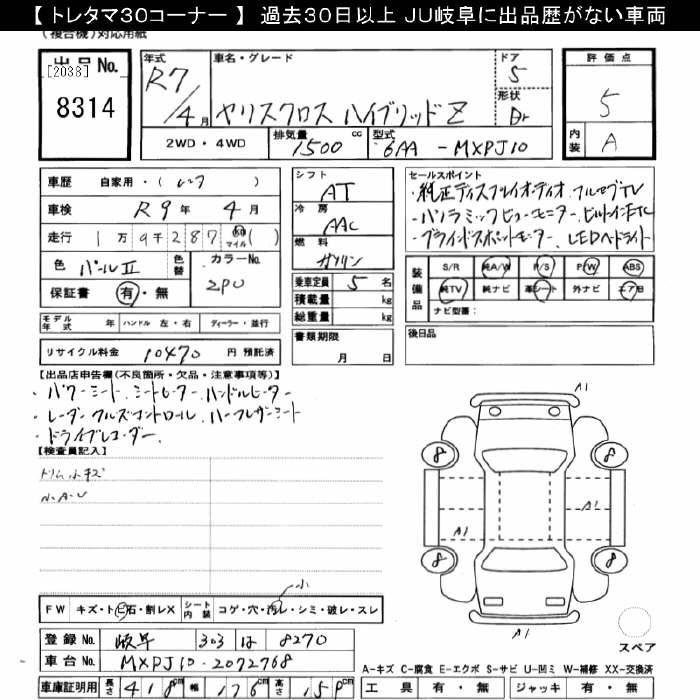 【 トレタマ30コーナー 】 過去30日以上 JU岐阜に出品歴がない車両
(複合機) 対応用紙
出品No.
[2038]
8314
年式
R7/4月
車名・グレード
ヤリスクロス ハイブリッド Z
ドア
5
形状
評価点
5
内装
A
2WD・4WD
排気量
1500 cc
型式
6AA - MXPJ10
車歴 自家用・( )
車検 R9年 4月
走行 1万9千287 km マイル ( )
色 パールⅡ
色替
カラーNo.
2PU
保証書 有・無
シフト
AT
冷房
AAC
燃料
ガソリン
乗車定員 5 名
積載量 kg
総重量 kg
書類期限
月 日
セールスポイント
・純正ディスプレイオーディオ、フルセグTV
・パノラミックビューモニター、ビルトインETC
・ブラインドスポットモニター、LEDヘッドライト
装備品
S/R 純A/W P/S P/W ABS
純TV 純ナビ 革シート 外ナビ エアB
ナビ型番：
モデル年式 年 ハンドル 左・右 ディーラー・並行
後日品
リサイクル料金 10470 円 預託済
【出品店申告欄(不良箇所・欠品・注意事項等)】
・パワーシート、シートヒーター、ハンドルヒーター
・レーダークルーズコントロール、ハーフレザーシート
・ドライブレコーダー、
【検査員記入】
ドリム小キズ
N.A.U
小
FW キズ・トビ石・割レX シート内装 コゲ・穴・汚レ・シミ・破レ・スレ
登録No. 岐阜 303 は 8270
車台No. MXPJ10-2072768
車庫証明用 長さ 418cm 幅 176cm 高さ 159cm
A1
8
8
A1
A1
8
8
A1
スペア
A-キズ C-腐食 E-エクボ S-サビ U-凹ミ W-補修 XX-交換済
工具 有・無 ジャッキ 有・無